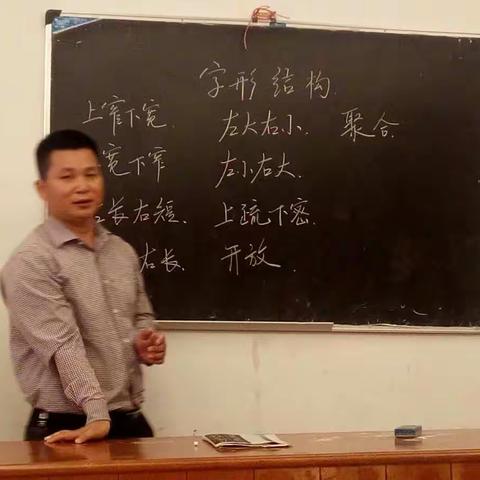 字形结构
上窄下宽 左大右小 聚合
宽下窄 左小右大
长右短 上疏下密
右长 开放